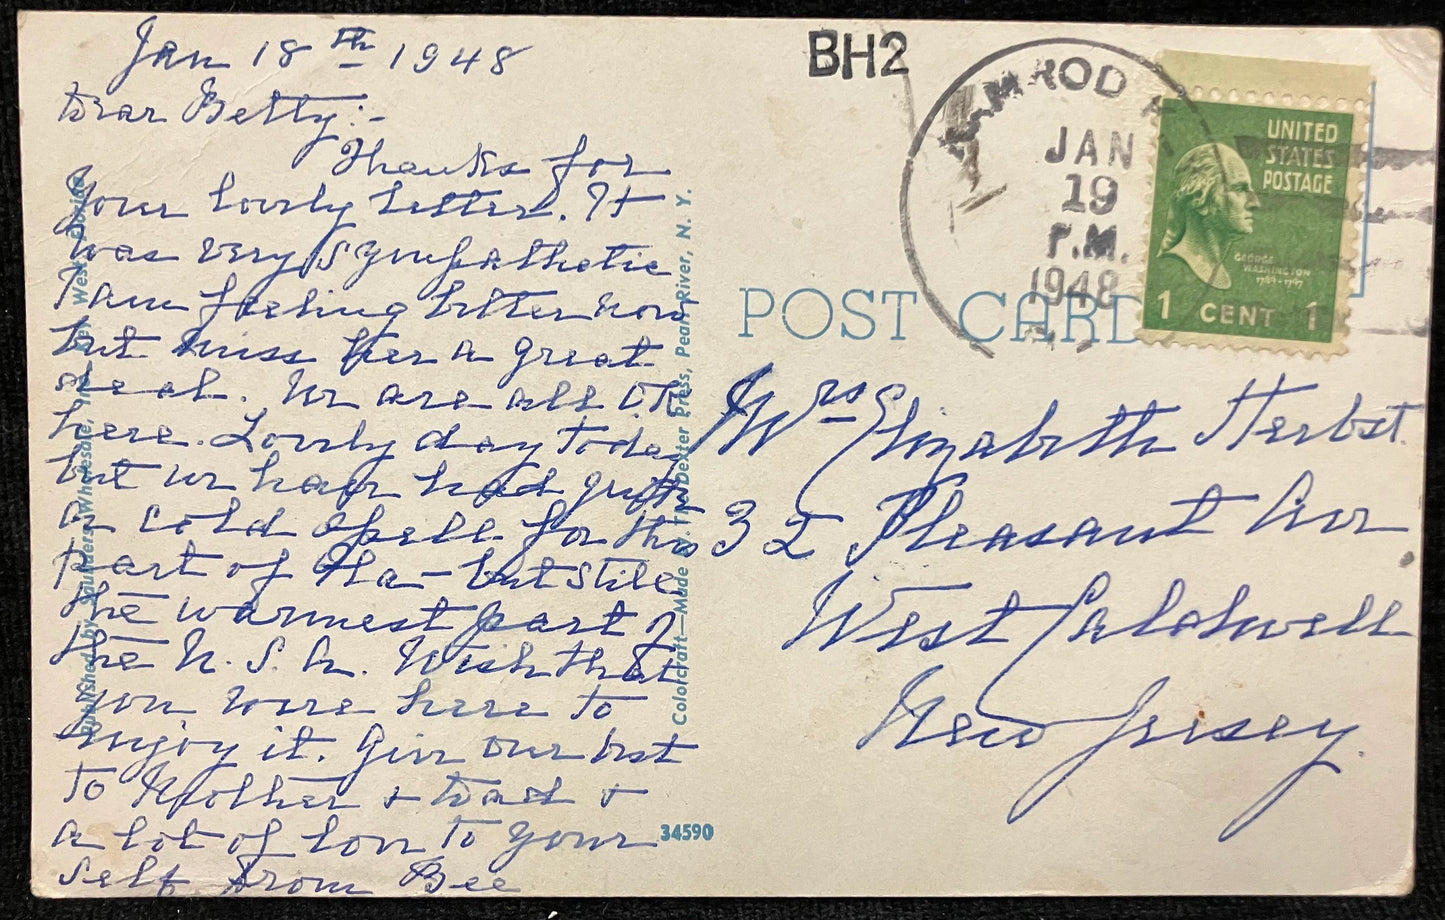 Jan 18th 1948
Dear Betty:-
Thanks for
your lovely letter. It
was very sympathetic
I am feeling better now
but miss her a great
deal. We are all O.K
here. Lovely day today
but we have had quite
a cold spell for this
part of Fla - but still
the warmest part of
the U. S. A. Wish that
you were here to
enjoy it. Give our best
to Mother + Dad +
a lot of love to your
self from Bee
Published by Saunders Wholesale, West Florida
Colorcraft—Made by The Dexter Press, Pearl River, N. Y.
34590
BH2
JAN
19
P.M.
1948
UNITED
STATES
POSTAGE
GEORGE
WASHINGTON
1789-1797
1 CENT 1
POST CARD
Mrs Elizabeth Herbst.
32 Pleasant Ave
West Caldwell
New Jersey.